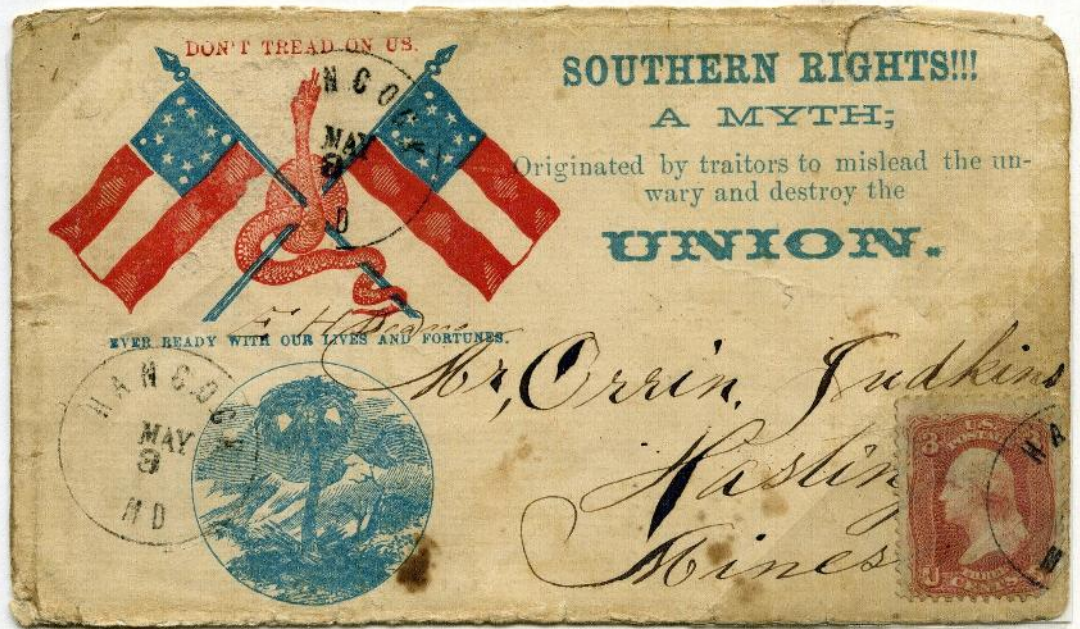 DON'T TREAD ON US.
SOUTHERN RIGHTS!!!
A MYTH;
Originated by traitors to mislead the un-
wary and destroy the
UNION.
EVER READY WITH OUR LIVES AND FORTUNES.
NCOCK
MAY
9
D
HANCOCK
MAY
9
MD
Mr, Orrin, Judkins
Hastin
Mines
U.S.
3
HA
M